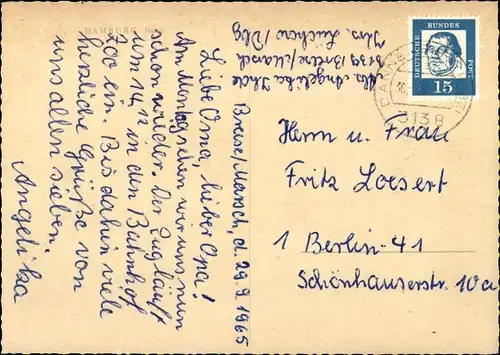 HAMBURG
Breese/Marsch, d. 29.9.1965
Liebe Oma, lieber Opa!
Am Montag sehen wir uns nun
schon wieder. Der Zug läuft
um 14.12 in den Bahnhof
Zoo ein. Bis dahin viele
herzliche Grüße von
uns allen sieben.
Angelika
Abs. Angelika
3139 Breese/Marsch
Krs. Lüchow/Dbg
DEUTSCHE BUNDES POST
15
3138
Herrn u. Frau
Fritz Loesert
1 Berlin-41
Schönhauserstr. 10a